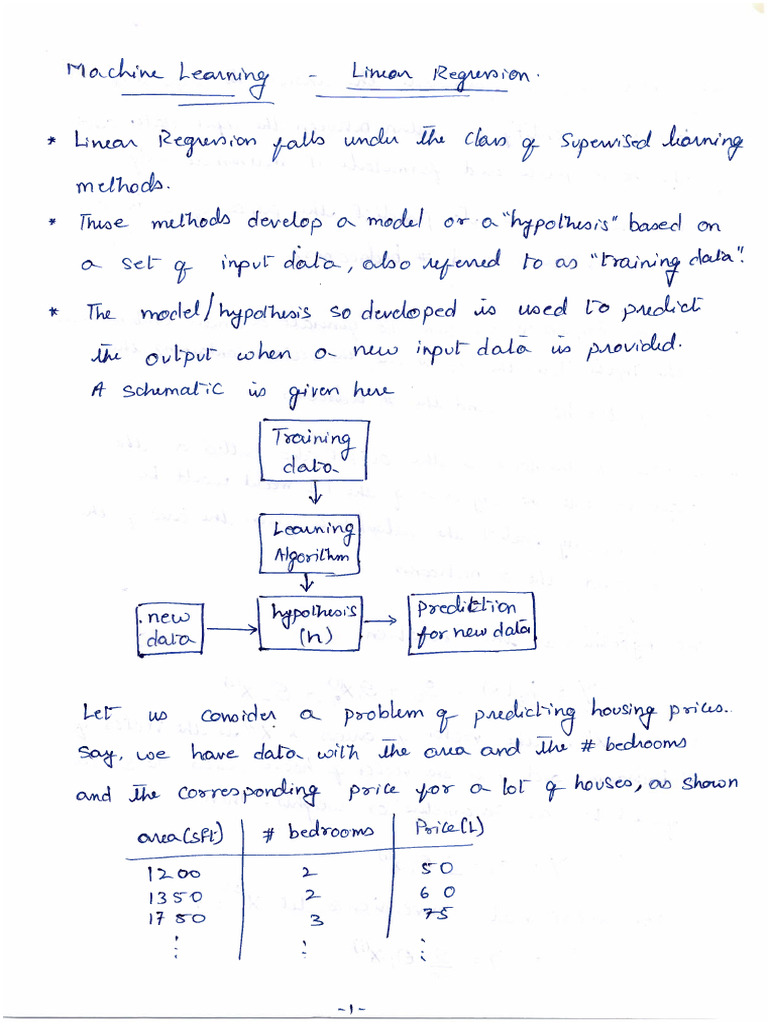 Machine Learning - Linear Regression.
* Linear Regression falls under the class of supervised learning
methods.
* These methods develop a model or a "hypothesis" based on
a set of input data, also referred to as "training data".
* The model/hypothesis so developed is used to predict
the output when a new input data is provided.
A schematic is given here
Training
data
Learning
Algorithm
new
data
hypothesis
(h)
prediction
for new data
Let us consider a problem of predicting housing prices.
Say, we have data with the area and the # bedrooms
and the corresponding price for a lot of houses, as shown
area(sft) # bedrooms Price(L)
1200 2 50
1350 2 60
1750 3 75
⋮ ⋮ ⋮
-1-